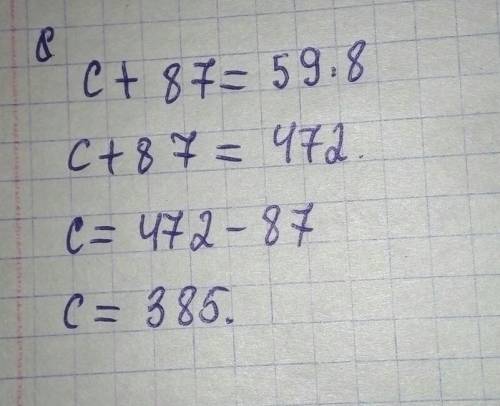 c + 87 = 59.8
c + 87 = 472.
c = 472 - 87
c = 385.